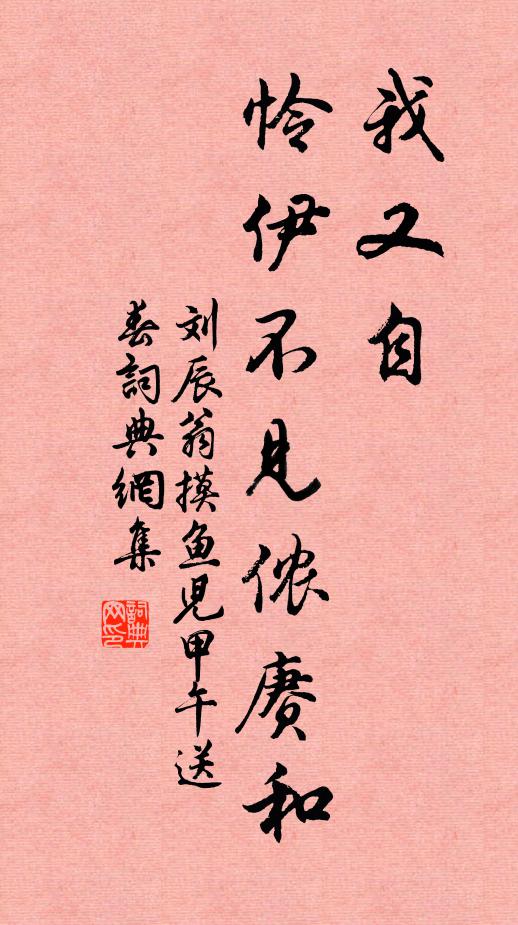 我又自
怜伊不见侬赓和
刘辰翁摸鱼児甲午送
春詞典網集
詞典
网印